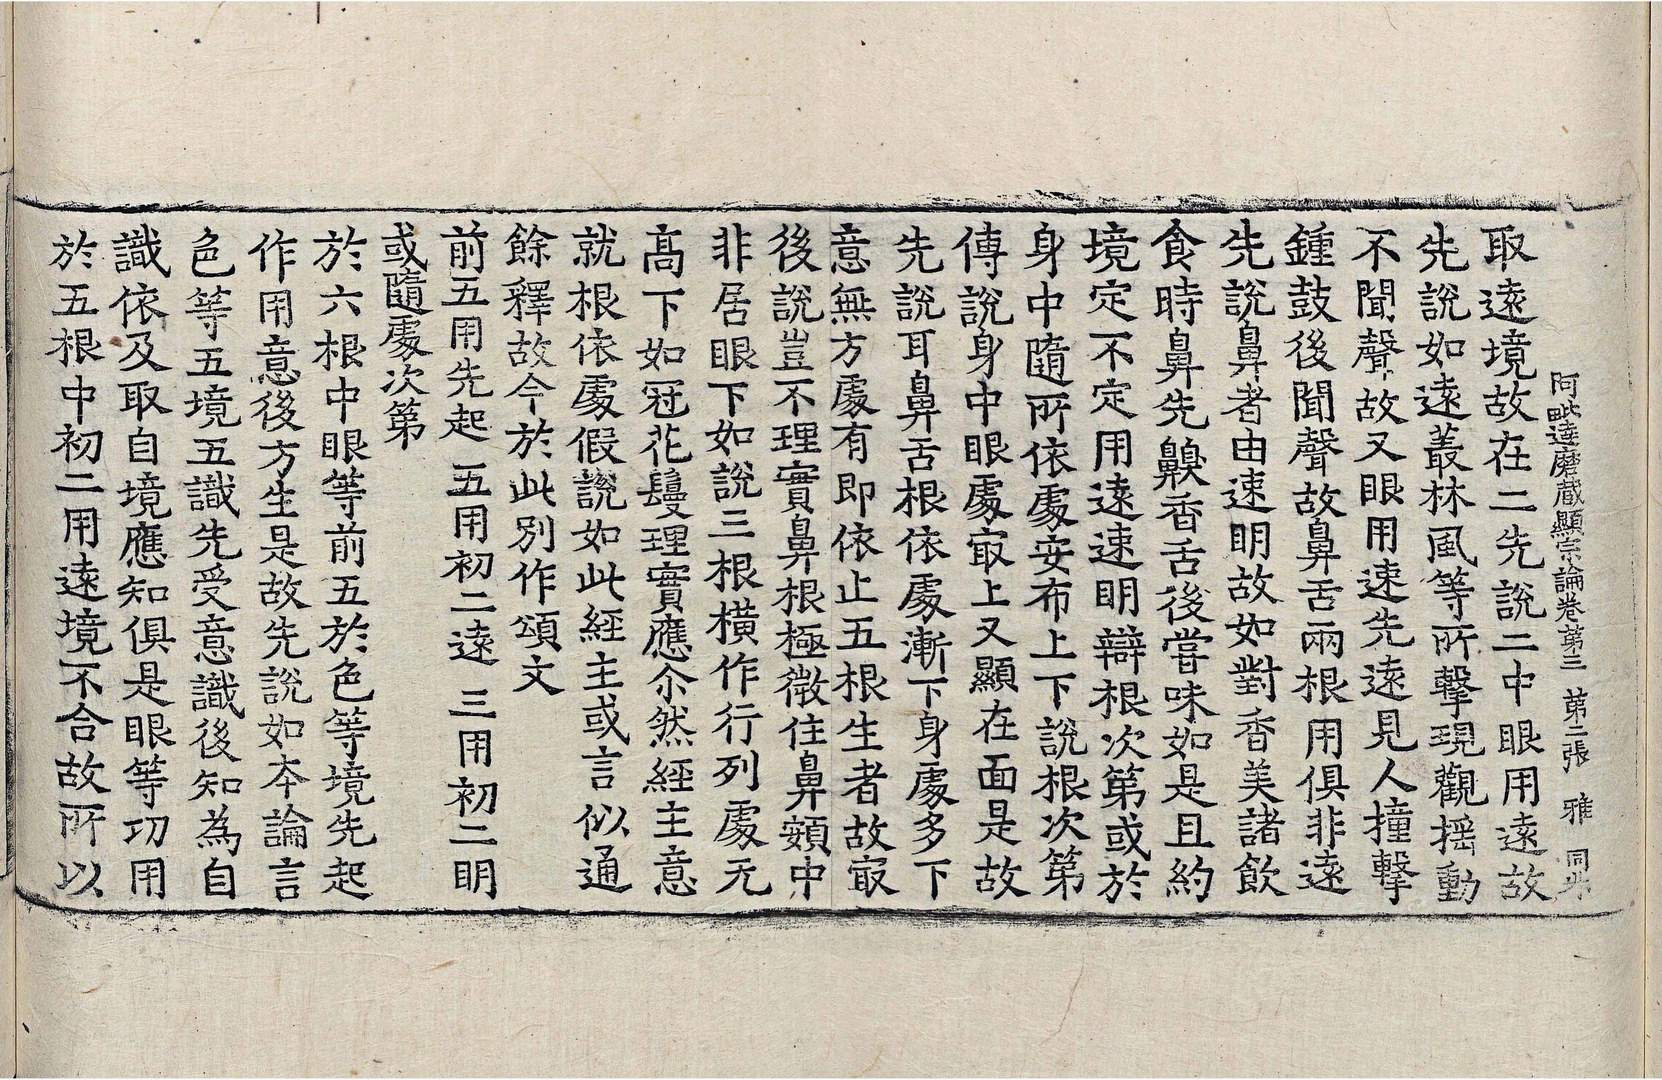 阿毗達磨藏顯宗論卷第三 第二張 雅 同
取遠境故在二先說二中眼用遠故
先說如遠叢林風等所擊現觀搖動
不聞聲故又眼用速先遠見人撞擊
鍾鼓後聞聲故鼻舌兩根用俱非遠
先說鼻者由速明故如對香美諸飲
食時鼻先齅香舌後嘗味如是且約
境定不定用遠速明辯根次第或於
身中隨所依處安布上下說根次第
傳說身中眼處㝡上又顯在面是故
先說耳鼻舌根依處漸下身處多下
意無方處有即依止五根生者故㝡
後說豈不理實鼻根極微住鼻頞中
非居眼下如說三根橫作行列處无
髙下如冠花鬘理實應尒然經主意
就根依處假說如此經主或言似通
餘釋故今於此別作頌文
前五用先起 五用初二遠 三用初二明
或隨處次第
於六根中眼等前五於色等境先起
作用意後方生是故先說如本論言
色等五境五識先受意識後知為自
識依及取自境應知俱是眼等功用
於五根中初二用遠境不合故所以